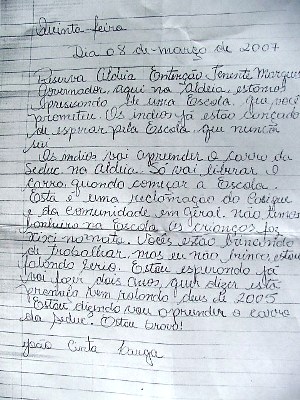 Quinta-feira
Dia 08 de-março de 2007
Reserva Aldeia Extenção Tenente Marques
Governador, aqui na Aldeia, estamos
precisando de uma Escola, que você
prometeu. Os indios já estão cançado
de esperar pela Escola, que nunca
sai
Os indios vai aprender o carro da
Seduc na aldeia. Só vai liberar o
carro quando começar a Escola.
Esta é uma reclamação do Casique
e da comunidade em giral. não temos
banheiro na Escola os crianças faz
xixi no mato. Vocês estão brincando
de trabalhar, mas eu não brinco, estou
falando serio. Estou esperando já
vai fazer dois anos, quer dizer esta
promeça vem rolando des de 2005
Estou dizendo vou aprender o carro
da seduc. Estou bravo!
João Cinta Larga